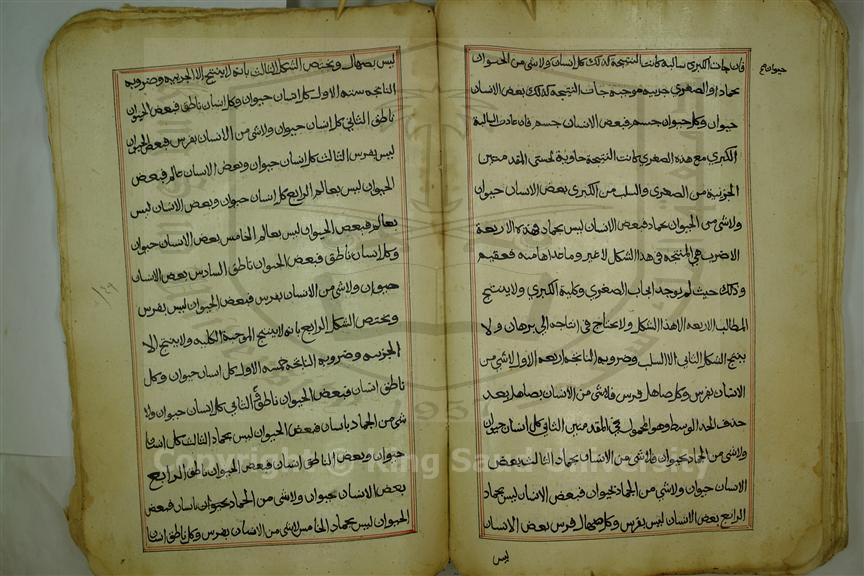 فان جات الكبرى سالبة كانت النتيجة كذلك كل انسان ولاشي من الحيوان
حيوان
بجماد او الصغرى جزييه موجبه جات النتيجه كذلك بعض الانسان
حيوان وكل حيوان جسم فبعض الانسان جسم فان عادت السالبة
الكبرى مع هذه الصغرى كانت النتيجة حاوية لخستى المقدمتين
الجزئية من الصغرى والسلب من الكبرى بعض الانسان حيوان
ولاشي من الحيوان بجماد فبعض الانسان ليس بجماد فهذه الاربعة
الاضرب هي المنتجه في هذا الشكل لا غير وما عداها منه فعقيم
وذلك حيث لم يوجد ايجاب الصغرى وكلية الكبرى ولا ينتج
المطالب الاربعه الا هذا الشكل ولا يحتاج في انتاجه الى برهان ولا
ينتج الشكل الثاني الا السلب وضروبه الناتجه اربعه الاول لاشي من
الانسان بفرس وكل صاهل فرس فلاشي من الانسان بصاهل بعد
حذف الحد الوسط وهو المحمول في المقدمتين الثاني كل انسان حيوان
ولاشي من الجماد بحيوان فلاشي من الانسان بجماد الثالث بعض
الانسان حيوان ولاشي من الجماد بحيوان فبعض الانسان ليس بجماد
الرابع بعض الانسان ليس بفرس وكل صهال فرس بعض الانسان
ليس
ليس بصهال ويختص الشكل الثالث بانه لا ينتج الا الجزييه وضروبه
الناتجه سته الاول كل انسان حيوان وكل انسان ناطق فبعض الحيوان
ناطق الثاني كل انسان حيوان ولاشي من الانسان بفرس فبعض الحيوان
ليس بفرس الثالث كل انسان حيوان وبعض الانسان عالم فبعض
الحيوان ليس بعالم الرابع كل انسان حيوان وبعض الانسان ليس
بعالم فبعض الحيوان ليس بعالم الخامس بعض الانسان حيوان
وكل انسان ناطق فبعض الحيوان ناطق السادس بعض الانسان
حيوان ولاشي من الانسان بفرس فبعض الحيوان ليس بفرس
ويختص الشكل الرابع بانه لا ينتج الموجبة الكليه ولا ينتج الا
الجزييه وضروبه الناتجه خمسه الاول كل انسان حيوان وكل
ناطق انسان فبعض الحيوان ناطق الثاني كل انسان حيوان ولا
شي من الجماد بانسان فبعض الحيوان ليس بجماد الثالث كل انسان
حيوان وبعض الناطق انسان فبعض الحيوان ناطق الرابع
بعض الانسان بحيوان ولاشي من الجماد بحيوان بانسان فبعض
الحيوان ليس بجماد الخامس لاشي من الانسان بفرس وكل ناطق انسان
1957
Copyright © King Saud University